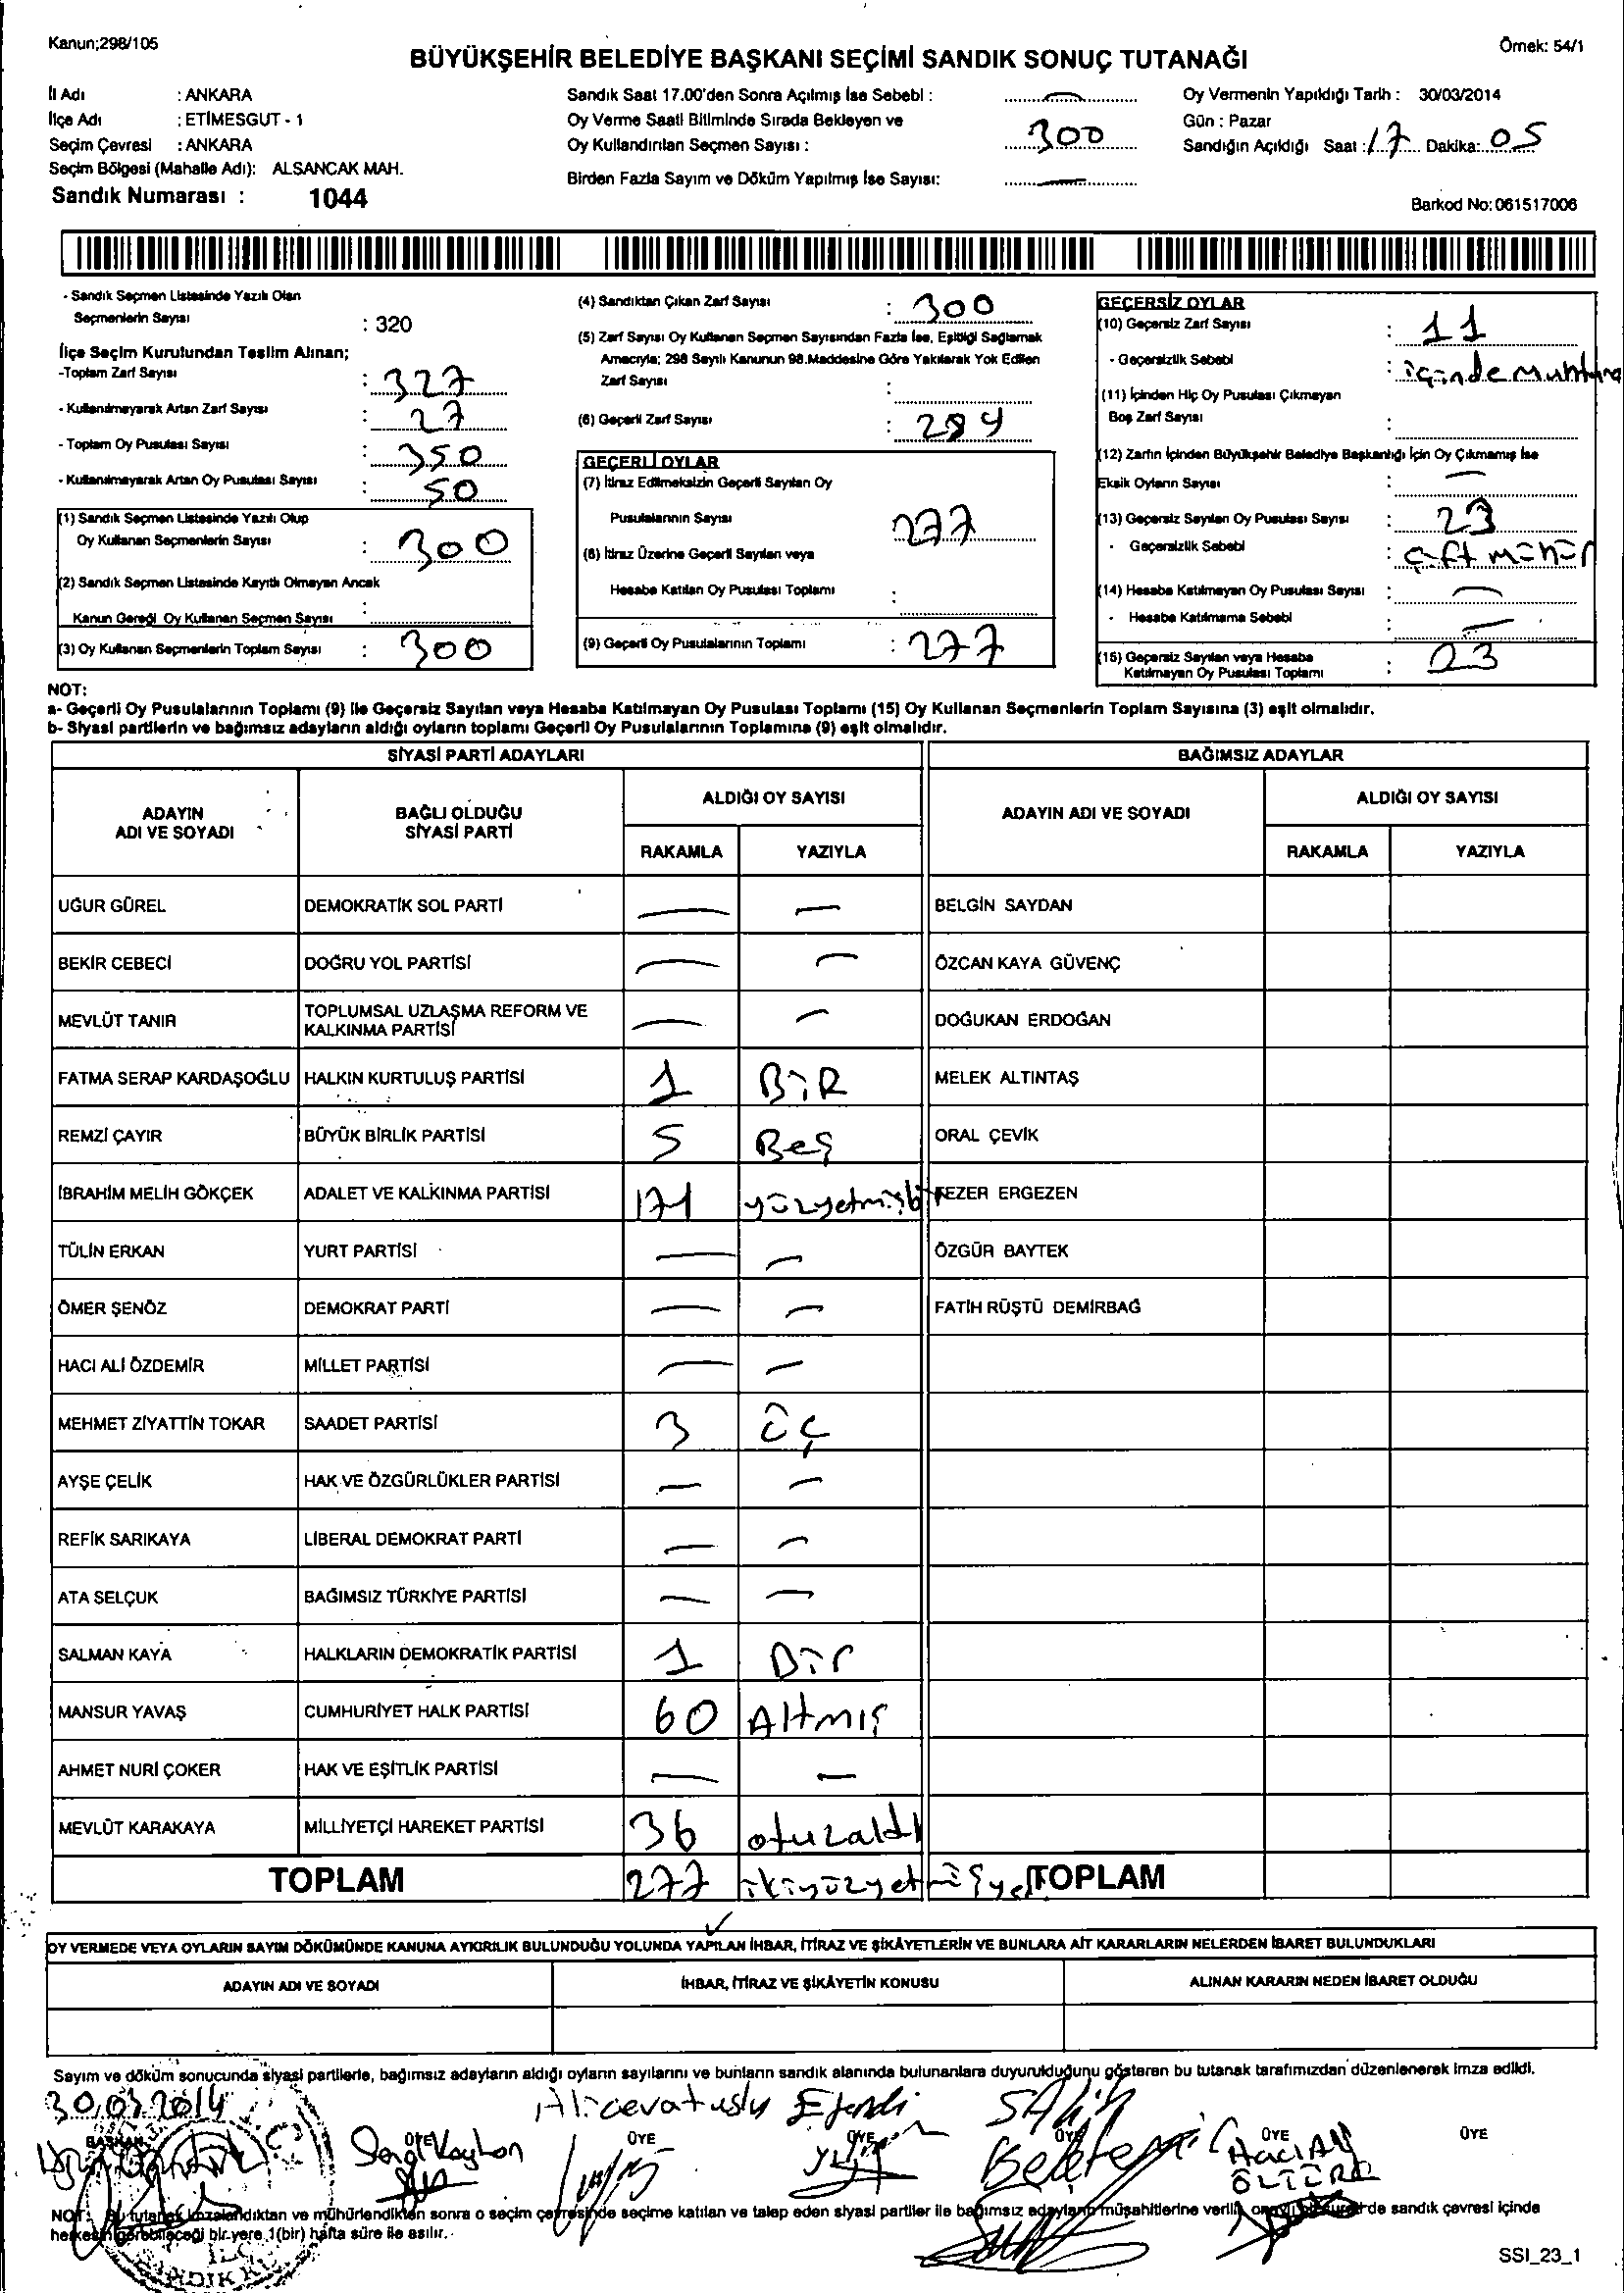 Kanun;298/105
Örnek: 54/1
BÜYÜKŞEHİR BELEDİYE BAŞKANI SEÇİMİ SANDIK SONUÇ TUTANAĞI
İl Adı : ANKARA
İlçe Adı : ETİMESGUT - 1
Seçim Çevresi : ANKARA
Seçim Bölgesi (Mahalle Adı): ALSANCAK MAH.
Sandık Numarası : 1044
Sandık Saat 17.00'den Sonra Açılmış İse Sebebi :
Oy Verme Saati Bitiminde Sırada Bekleyen ve
Oy Kullandırılan Seçmen Sayısı : 300
Birden Fazla Sayım ve Döküm Yapılmış İse Sayısı: —
Oy Vermenin Yapıldığı Tarih : 30/03/2014
Gün : Pazar
Sandığın Açıldığı Saat : 17 Dakika: 05
Barkod No: 061517006
- Sandık Seçmen Listesinde Yazılı Olan
Seçmenlerin Sayısı : 320
İlçe Seçim Kurulundan Teslim Alınan;
-Toplam Zarf Sayısı : 327
- Kullanılmayarak Artan Zarf Sayısı : 27
- Toplam Oy Pusulası Sayısı : 350
- Kullanılmayarak Artan Oy Pusulası Sayısı : 50
(1) Sandık Seçmen Listesinde Yazılı Olup
Oy Kullanan Seçmenlerin Sayısı : 300
(2) Sandık Seçmen Listesinde Kayıtlı Olmayan Ancak
Kanun Gereği Oy Kullanan Seçmen Sayısı :
(3) Oy Kullanan Seçmenlerin Toplam Sayısı : 300
(4) Sandıktan Çıkan Zarf Sayısı : 300
(5) Zarf Sayısı Oy Kullanan Seçmen Sayısından Fazla İse, Eşitliği Sağlamak
Amacıyla; 298 Sayılı Kanunun 98.Maddesine Göre Yakılarak Yok Edilen
Zarf Sayısı :
(6) Geçerli Zarf Sayısı : 289
GEÇERLİ OYLAR
(7) İtiraz Edilmeksizin Geçerli Sayılan Oy
Pusulalarının Sayısı 277
(8) İtiraz Üzerine Geçerli Sayılan veya
Hesaba Katılan Oy Pusulası Toplamı :
(9) Geçerli Oy Pusulalarının Toplamı : 277
GEÇERSİZ OYLAR
(10) Geçersiz Zarf Sayısı : 11
- Geçersizlik Sebebi : içinde
(11) İçinden Hiç Oy Pusulası Çıkmayan
Boş Zarf Sayısı :
(12) Zarfın İçinden Büyükşehir Belediye Başkanlığı İçin Oy Çıkmamış İse
Eksik Oyların Sayısı : —
(13) Geçersiz Sayılan Oy Pusulası Sayısı : 23
- Geçersizlik Sebebi : çift mühür
(14) Hesaba Katılmayan Oy Pusulası Sayısı : —
- Hesaba Katılmama Sebebi : —
(15) Geçersiz Sayılan veya Hesaba
Katılmayan Oy Pusulası Toplamı : 23
NOT:
a- Geçerli Oy Pusulalarının Toplamı (9) ile Geçersiz Sayılan veya Hesaba Katılmayan Oy Pusulası Toplamı (15) Oy Kullanan Seçmenlerin Toplam Sayısına (3) eşit olmalıdır.
b- Siyasi partilerin ve bağımsız adayların aldığı oyların toplamı Geçerli Oy Pusulalarının Toplamına (9) eşit olmalıdır.
SİYASİ PARTİ ADAYLARI BAĞIMSIZ ADAYLAR
ADAYIN ADI VE SOYADI BAĞLI OLDUĞU SİYASİ PARTİ ALDIĞI OY SAYISI ADAYIN ADI VE SOYADI ALDIĞI OY SAYISI
RAKAMLA YAZIYLA RAKAMLA YAZIYLA
UĞUR GÜREL DEMOKRATİK SOL PARTİ — — BELGİN SAYDAN
BEKİR CEBECİ DOĞRU YOL PARTİSİ — — ÖZCAN KAYA GÜVENÇ
MEVLÜT TANIR TOPLUMSAL UZLAŞMA REFORM VE KALKINMA PARTİSİ — — DOĞUKAN ERDOĞAN
FATMA SERAP KARDAŞOĞLU HALKIN KURTULUŞ PARTİSİ 1 BİR MELEK ALTINTAŞ
REMZİ ÇAYIR BÜYÜK BİRLİK PARTİSİ 5 Beş ORAL ÇEVİK
İBRAHİM MELİH GÖKÇEK ADALET VE KALKINMA PARTİSİ 171 yüzyetmişbir EZER ERGEZEN
TÜLİN ERKAN YURT PARTİSİ — — ÖZGÜR BAYTEK
ÖMER ŞENÖZ DEMOKRAT PARTİ — — FATİH RÜŞTÜ DEMİRBAĞ
HACI ALİ ÖZDEMİR MİLLET PARTİSİ — —
MEHMET ZİYATTİN TOKAR SAADET PARTİSİ 3 üç
AYŞE ÇELİK HAK VE ÖZGÜRLÜKLER PARTİSİ — —
REFİK SARIKAYA LİBERAL DEMOKRAT PARTİ — —
ATA SELÇUK BAĞIMSIZ TÜRKİYE PARTİSİ — —
SALMAN KAYA HALKLARIN DEMOKRATİK PARTİSİ 1 Bir
MANSUR YAVAŞ CUMHURİYET HALK PARTİSİ 60 Altmış
AHMET NURİ ÇOKER HAK VE EŞİTLİK PARTİSİ — —
MEVLÜT KARAKAYA MİLLİYETÇİ HAREKET PARTİSİ 36 otuzaltı
TOPLAM 277 ikiyüzyetmişyedi TOPLAM
OY VERMEDE VEYA OYLARIN SAYIM DÖKÜMÜNDE KANUNA AYKIRILIK BULUNDUĞU YOLUNDA YAPILAN İHBAR, İTİRAZ VE ŞİKÂYETLERİN VE BUNLARA AİT KARARLARIN NELERDEN İBARET BULUNDUKLARI
ADAYIN ADI VE SOYADI İHBAR, İTİRAZ VE ŞİKÂYETİN KONUSU ALINAN KARARIN NEDEN İBARET OLDUĞU
Sayım ve döküm sonucunda siyasi partilerle, bağımsız adayların aldığı oyların sayılarını ve bunların sandık alanında bulunanlara duyurulduğunu gösteren bu tutanak tarafımızdan düzenlenerek imza edildi.
30.03.2014 Efendi
BAŞKAN ÜYE ÜYE ÜYE ÜYE ÜYE ÜYE
NOT: Bu tutanak imzalandıktan ve mühürlendikten sonra o seçim çevresinde seçime katılan ve talep eden siyasi partiler ile bağımsız adayların müşahitlerine verilir, de sandık çevresi içinde
herkesin görebileceği bir yere 1(bir) hafta süre ile asılır.
SSI_23_1